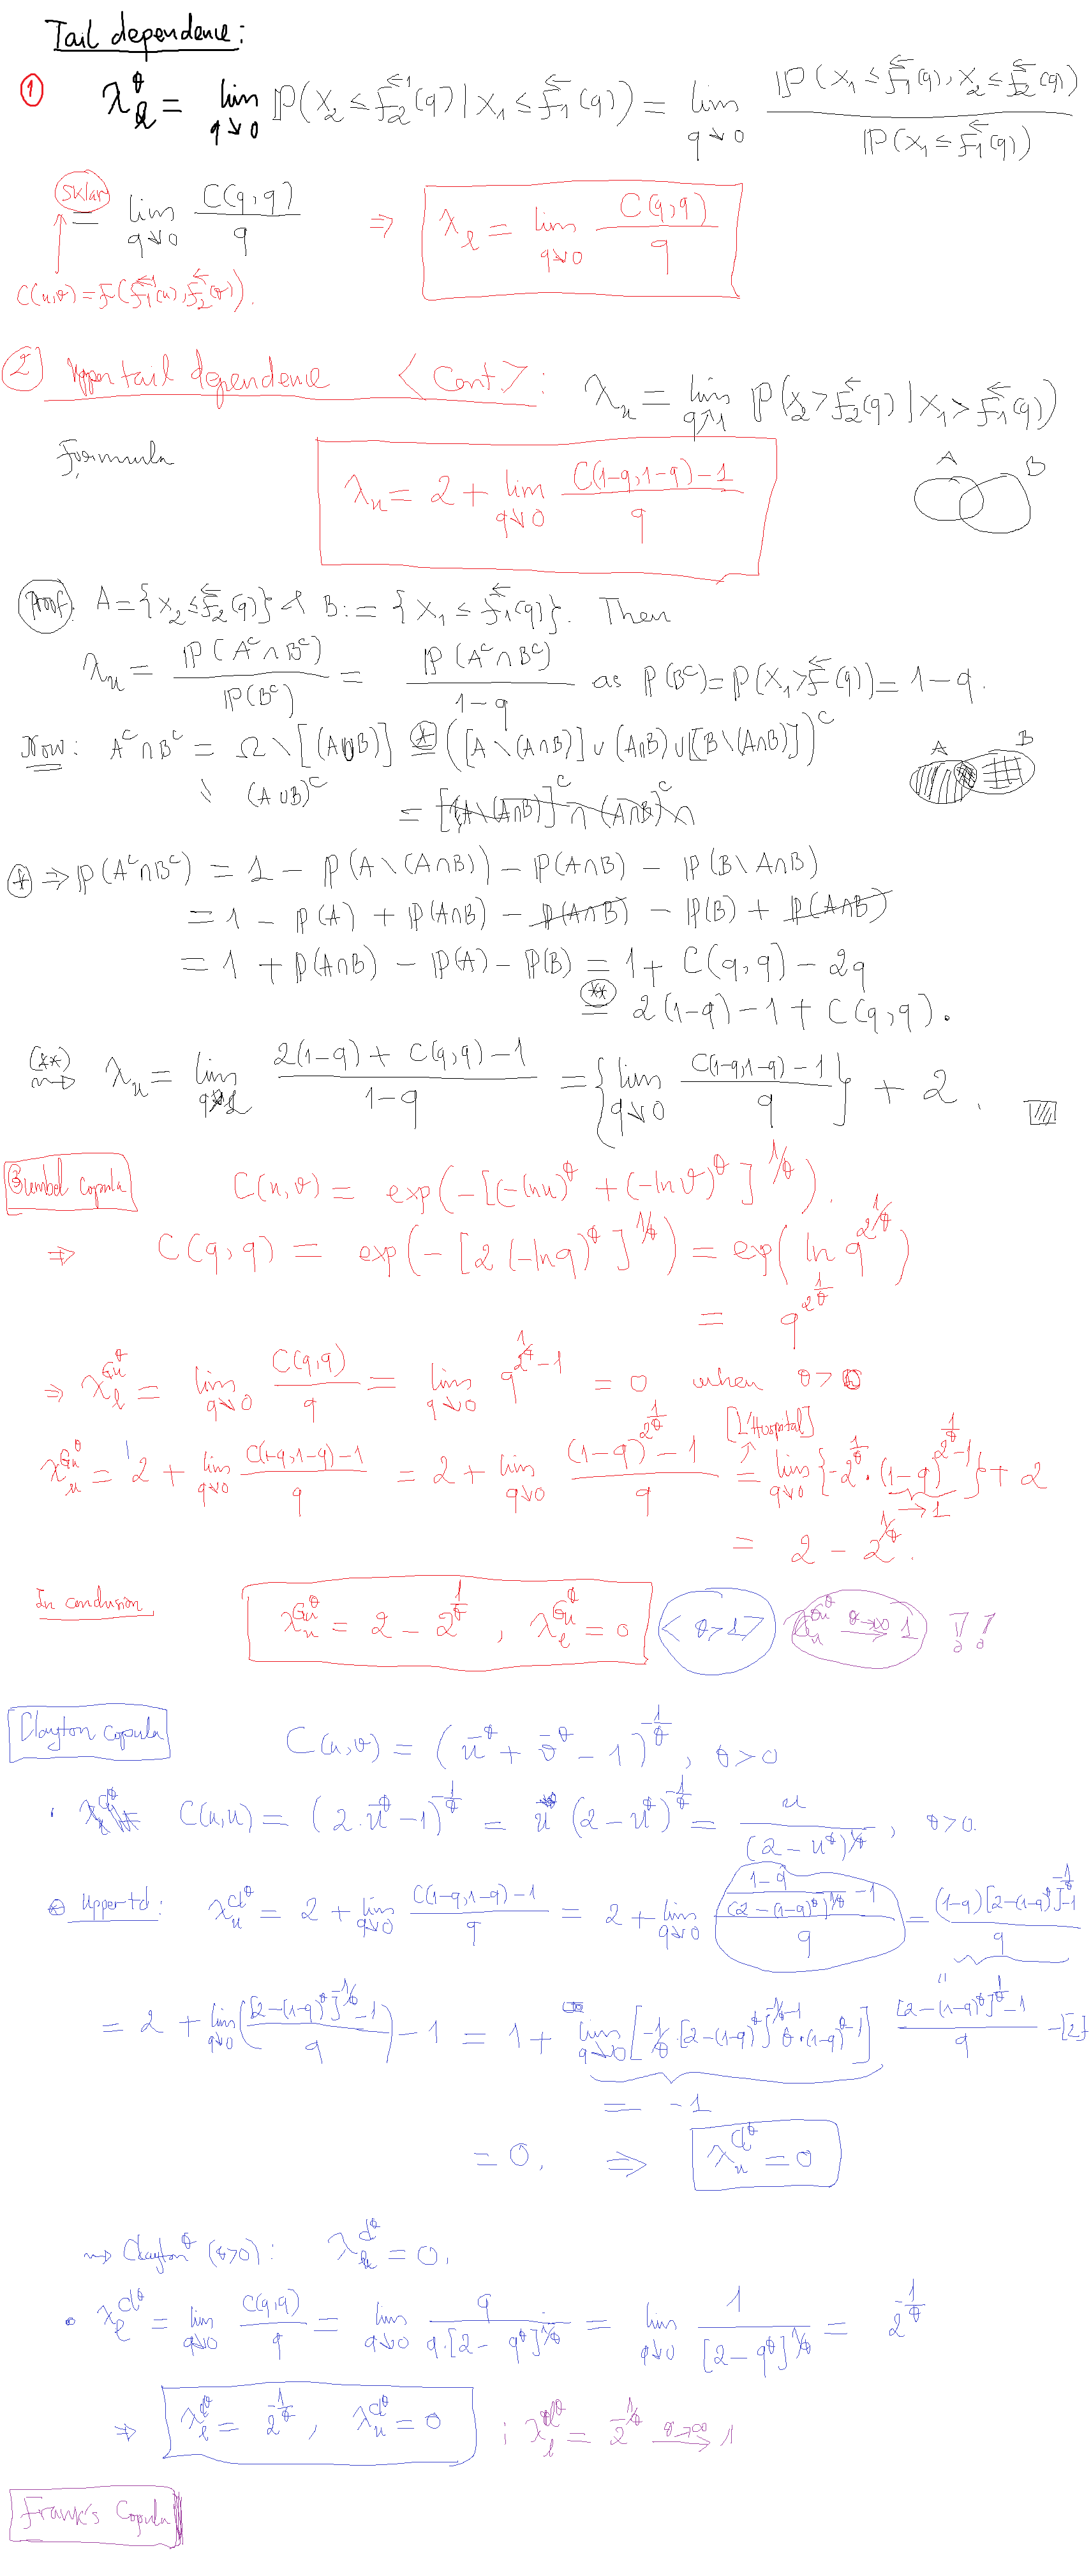 Tail dependence:
① λ_ℓ^θ = lim_{q↘0} ℙ(X₂ ≤ F₂^←(q) | X₁ ≤ F₁^←(q)) = lim_{q↘0} ℙ(X₁ ≤ F₁^←(q), X₂ ≤ F₂^←(q)) / ℙ(X₁ ≤ F₁^←(q))
Sklar = lim_{q↘0} C(q,q)/q ⇒ λ_ℓ = lim_{q↘0} C(q,q)/q
C(u,v) = F(F₁^←(u), F₂^←(v)).
② Upper tail dependence <Cont>: λ_u = lim_{q↗1} ℙ(X₂ > F₂^←(q) | X₁ > F₁^←(q))
Formula λ_u = 2 + lim_{q↘0} (C(1-q,1-q) - 1)/q
A B
Proof: A = {X₂ ≤ F₂^←(q)} & B := {X₁ ≤ F₁^←(q)}. Then
λ_u = ℙ(A^c ∩ B^c)/ℙ(B^c) = ℙ(A^c ∩ B^c)/(1-q) as ℙ(B^c) = ℙ(X₁ > F^←(q)) = 1-q.
Now: A^c ∩ B^c = Ω \ [(A∪B)] ⊛ ([A \ (A∩B)] ∪ (A∩B) ∪ [B \ (A∩B)])^c
(A∪B)^c
= [(A \ (A∩B)]^c ∩ (A∩B)^c ∩
A B
⊛ ⇒ ℙ(A^c ∩ B^c) = 1 - ℙ(A \ (A∩B)) - ℙ(A∩B) - ℙ(B \ A∩B)
= 1 - ℙ(A) + ℙ(A∩B) - ℙ(A∩B) - ℙ(B) + ℙ(A∩B)
= 1 + ℙ(A∩B) - ℙ(A) - ℙ(B) = 1 + C(q,q) - 2q
(**) = 2(1-q) - 1 + C(q,q).
(**) ⇝ λ_u = lim_{q↗1} (2(1-q) + C(q,q) - 1)/(1-q) = {lim_{q↘0} (C(1-q,1-q) - 1)/q} + 2.
Gumbel copula C(u,v) = exp(-[(-ln u)^θ + (-ln v)^θ]^{1/θ}).
⇒ C(q,q) = exp(-[2(-ln q)^θ]^{1/θ}) = exp(ln q^{2^{1/θ}})
= q^{2^{1/θ}}
⇒ λ_ℓ^{Gu^θ} = lim_{q↘0} C(q,q)/q = lim_{q↘0} q^{2^{1/θ}-1} = 0 when θ >
λ_u^{Gu^θ} = 2 + lim_{q↘0} (C(1-q,1-q) - 1)/q = 2 + lim_{q↘0} ((1-q)^{2^{1/θ}} - 1)/q = [L'Hospital] lim_{q↘0} {-2^{1/θ} · (1-q)^{2^{1/θ}-1}} + 2
→ 1
= 2 - 2^{1/θ}.
In conclusion λ_u^{Gu^θ} = 2 - 2^{1/θ}, λ_ℓ^{Gu^θ} = 0 <θ > 1> λ_u^{Gu^θ} →^{θ→∞} 1 !!
Clayton copula C(u,v) = (u^{-θ} + v^{-θ} - 1)^{-1/θ}, θ > 0
· C(u,u) = (2·u^{-θ} - 1)^{-1/θ} = u (2 - u^θ)^{-1/θ} = u/(2 - u^θ)^{1/θ}, θ > 0.
Upper td: λ_u^{Cl^θ} = 2 + lim_{q↘0} (C(1-q,1-q) - 1)/q = 2 + lim_{q↘0} ((1-q)/(2-(1-q)^θ)^{1/θ} - 1)/q = ((1-q)[2-(1-q)^θ]^{-1/θ} - 1)/q
= 2 + lim_{q↘0} (([2-(1-q)^θ]^{-1/θ} - 1)/q) - 1 = 1 + lim_{q↘0} [-1/θ · [2-(1-q)^θ]^{-1/θ-1} θ·(1-q)^{θ-1}] ([2-(1-q)^θ]^{1/θ} - 1)/q - [2]
= -1
= 0. ⇒ λ_u^{Cl^θ} = 0
⇝ Clayton^θ (θ>0): λ_u^{Cl^θ} = 0.
• λ_ℓ^{Cl^θ} = lim_{q↘0} C(q,q)/q = lim_{q↘0} q/(q·[2 - q^θ]^{1/θ}) = lim_{q↘0} 1/[2 - q^θ]^{1/θ} = 2^{-1/θ}
⇒ λ_ℓ^{Cl^θ} = 2^{-1/θ}, λ_u^{Cl^θ} = 0 ; λ_ℓ^{Cl^θ} = 2^{-1/θ} →^{θ→∞} 1
Frank's Copula